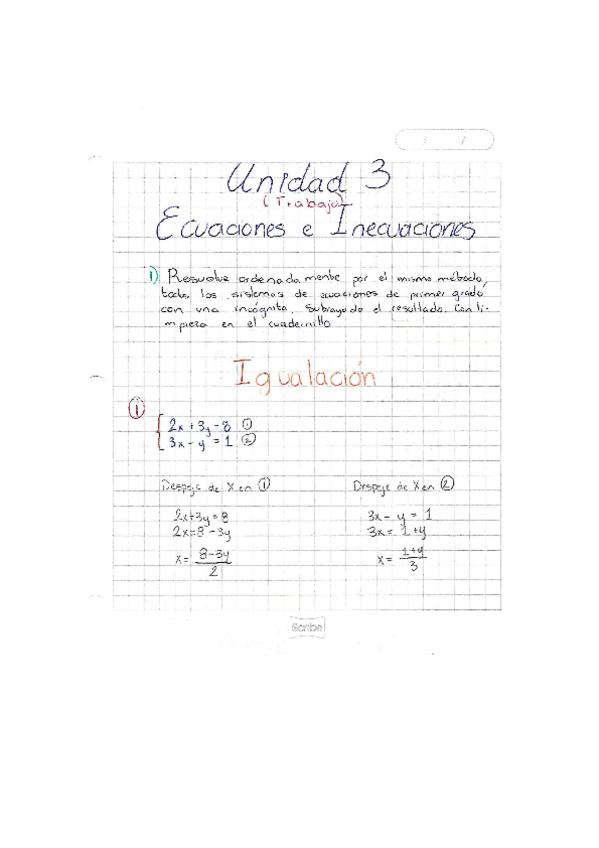 Unidad 3
(Trabajo)
Ecuaciones e Inecuaciones
1) Resuelve ordenadamente por el mismo método,
todos los sistemas de ecuaciones de primer grado
con una incógnita. Subrayado el resultado. Con li-
mpieza en el cuadernillo
Igualación
①
2x + 3y - 8 ①
3x - y = 1 ②
Despeje de X en ① Despeje de X en ②
2x+3y=8 3x - y = 1
2x=8-3y 3x = 1+y
x = 8-3y / 2 x = 1+y / 3
Scribe